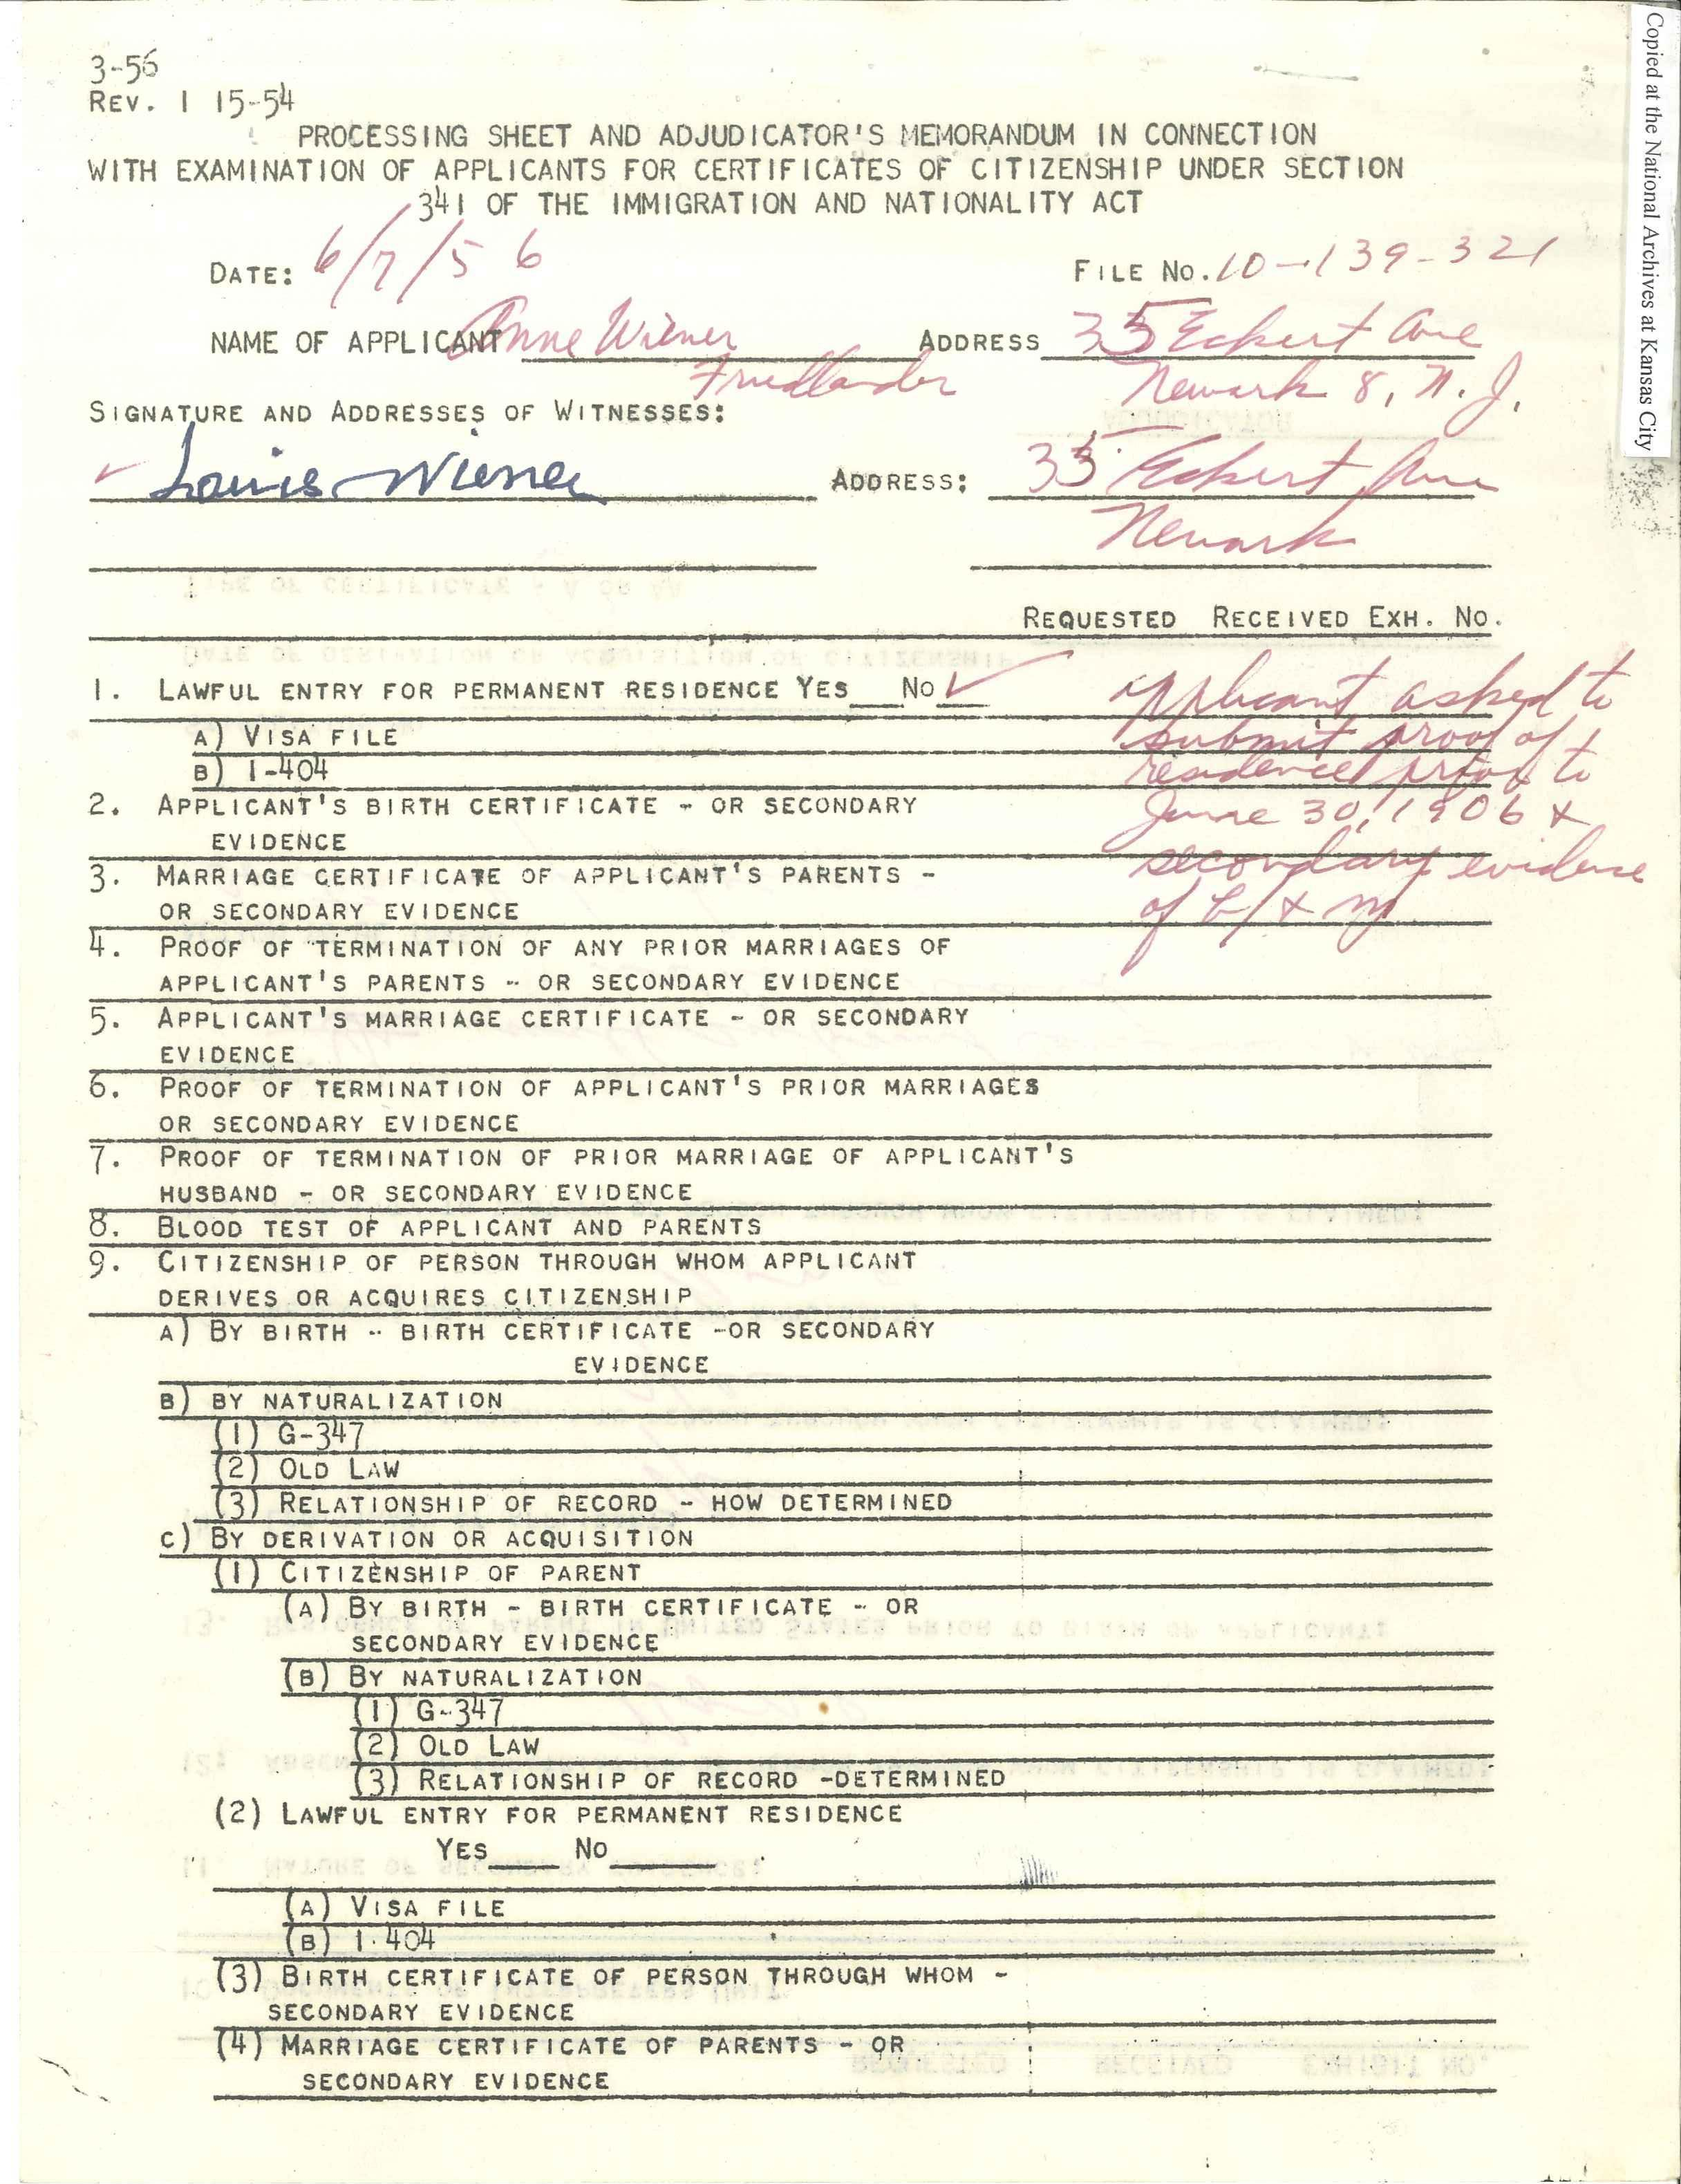 3-56
REV. 1 15-54
PROCESSING SHEET AND ADJUDICATOR'S MEMORANDUM IN CONNECTION
WITH EXAMINATION OF APPLICANTS FOR CERTIFICATES OF CITIZENSHIP UNDER SECTION
341 OF THE IMMIGRATION AND NATIONALITY ACT
DATE: 6/7/56 FILE NO. 10-139-321
NAME OF APPLICANT Anne Wiener ADDRESS 35 Eckert Ave
Friedlander Newark 8, N.J.
SIGNATURE AND ADDRESSES OF WITNESSES:
Louis Wiener ADDRESS: 35 Eckert Ave
Newark
REQUESTED RECEIVED EXH. NO.
1. LAWFUL ENTRY FOR PERMANENT RESIDENCE YES NO ✓ applicant asked to
submit proof of
A) VISA FILE
residence prior to
B) I-404
2. APPLICANT'S BIRTH CERTIFICATE - OR SECONDARY June 30, 1906 &
EVIDENCE
secondary evidence
3. MARRIAGE CERTIFICATE OF APPLICANT'S PARENTS -
OR SECONDARY EVIDENCE of b/ & m
4. PROOF OF TERMINATION OF ANY PRIOR MARRIAGES OF
APPLICANT'S PARENTS - OR SECONDARY EVIDENCE
5. APPLICANT'S MARRIAGE CERTIFICATE - OR SECONDARY
EVIDENCE
6. PROOF OF TERMINATION OF APPLICANT'S PRIOR MARRIAGES
OR SECONDARY EVIDENCE
7. PROOF OF TERMINATION OF PRIOR MARRIAGE OF APPLICANT'S
HUSBAND - OR SECONDARY EVIDENCE
8. BLOOD TEST OF APPLICANT AND PARENTS
9. CITIZENSHIP OF PERSON THROUGH WHOM APPLICANT
DERIVES OR ACQUIRES CITIZENSHIP
A) BY BIRTH - BIRTH CERTIFICATE -OR SECONDARY
EVIDENCE
B) BY NATURALIZATION
(1) G-347
(2) OLD LAW
(3) RELATIONSHIP OF RECORD - HOW DETERMINED
C) BY DERIVATION OR ACQUISITION
(1) CITIZENSHIP OF PARENT
(A) BY BIRTH - BIRTH CERTIFICATE - OR
SECONDARY EVIDENCE
(B) BY NATURALIZATION
(1) G-347
(2) OLD LAW
(3) RELATIONSHIP OF RECORD -DETERMINED
(2) LAWFUL ENTRY FOR PERMANENT RESIDENCE
YES NO
(A) VISA FILE
(B) I-404
(3) BIRTH CERTIFICATE OF PERSON THROUGH WHOM -
SECONDARY EVIDENCE
(4) MARRIAGE CERTIFICATE OF PARENTS - OR
SECONDARY EVIDENCE
Copied at the National Archives at Kansas City